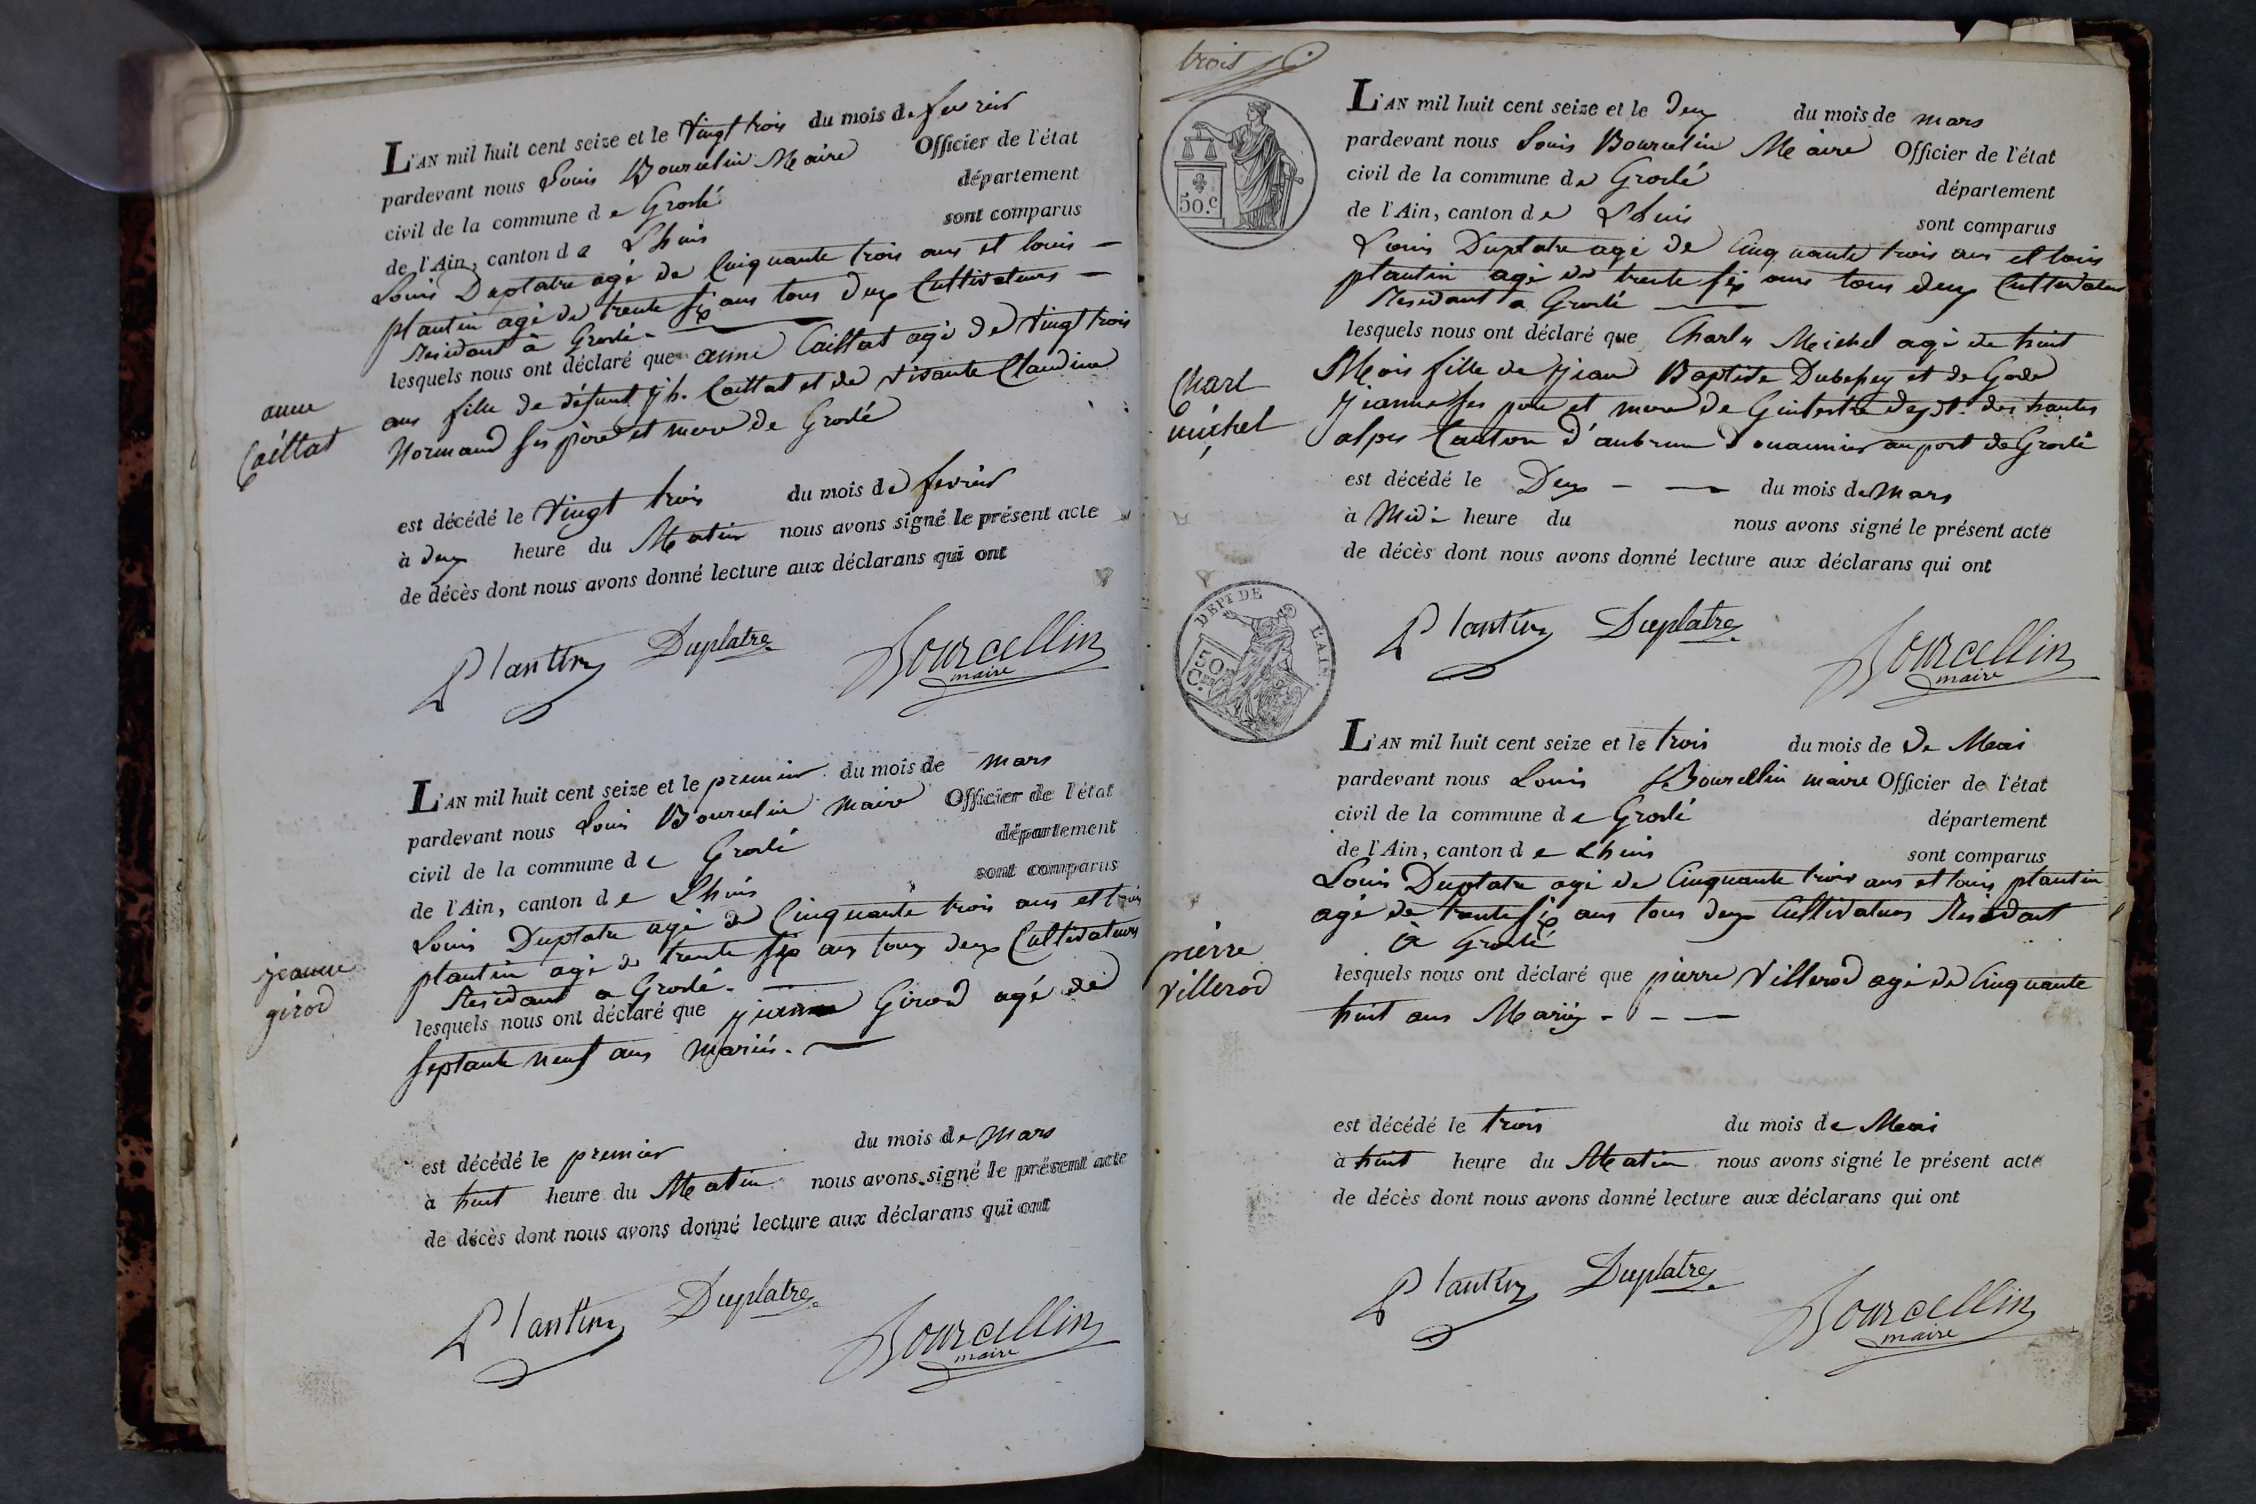 L'AN mil huit cent seize et le vingt trois du mois de fevrier
pardevant nous Louis Bourcelin Maire Officier de l'état
civil de la commune de Groslé département
de l'Ain, canton de Lhuis sont comparus
Louis Duplatre agé de Cinquante trois ans et louis
plantin agé de trente six ans tous deux Cultivateurs
Residant à Groslé
lesquels nous ont déclaré que anne Caillat agé de vingt trois
ans fille de défunt jh. Caillat et de vivante Claudine
Normand ses père et mere de Groslé
anne
Caillat
est décédé le vingt trois du mois de fevrier
à deux heure du Matin nous avons signé le présent acte
de décès dont nous avons donné lecture aux déclarans qui ont
Plantin Duplatre Bourcellin
maire
L'AN mil huit cent seize et le premier du mois de mars
pardevant nous Louis Bourcelin maire Officier de l'état
civil de la commune de Groslé département
de l'Ain, canton de Lhuis sont comparus
Louis Duplatre agé de Cinquante trois ans et louis
plantin agé de trente six ans tous deux Cultivateurs
Residant a Groslé
jeanne
girod
lesquels nous ont déclaré que jeanne Girod agé de
septante neuf ans mariés.
est décédé le premier du mois de mars
à huit heure du Matin nous avons signé le présent acte
de décès dont nous avons donné lecture aux déclarans qui ont
Plantin Duplatre Bourcellin
maire
trois
50.c
L'AN mil huit cent seize et le deux du mois de mars
pardevant nous Louis Bourcelin Maire Officier de l'état
civil de la commune de Groslé département
de l'Ain, canton de Lhuis sont comparus
Louis Duplatre agé de Cinquante trois ans et louis
plantin agé de trente six ans tous deux Cultivateurs
Residant a Groslé
lesquels nous ont déclaré que Charles Meichel agé de huit
Mois fille de jean Baptiste et de
jeanne ses pere et mere de dept. des hautes
alpes Canton d'aubrun douannier au port de Groslé
Charl
michel
est décédé le Deux du mois de mars
à Midi heure du nous avons signé le présent acte
de décès dont nous avons donné lecture aux déclarans qui ont
DEPT DE L'AIN.
50
Plantin Duplatre Bourcellin
maire
L'AN mil huit cent seize et le trois du mois de de Mars
pardevant nous Louis Bourcellin maire Officier de l'état
civil de la commune de Groslé département
de l'Ain, canton de Lhuis sont comparus
Louis Duplatre agé de Cinquante trois ans et louis plantin
agé de trente six ans tous deux Cultivateurs Residant
à Groslé
pierre
villerod
lesquels nous ont déclaré que pierre Villerod agé de Cinquante
huit ans Mariez
est décédé le trois du mois de Mars
à huit heure du Matin nous avons signé le présent acte
de décès dont nous avons donné lecture aux déclarans qui ont
Plantin Duplatre Bourcellin
maire